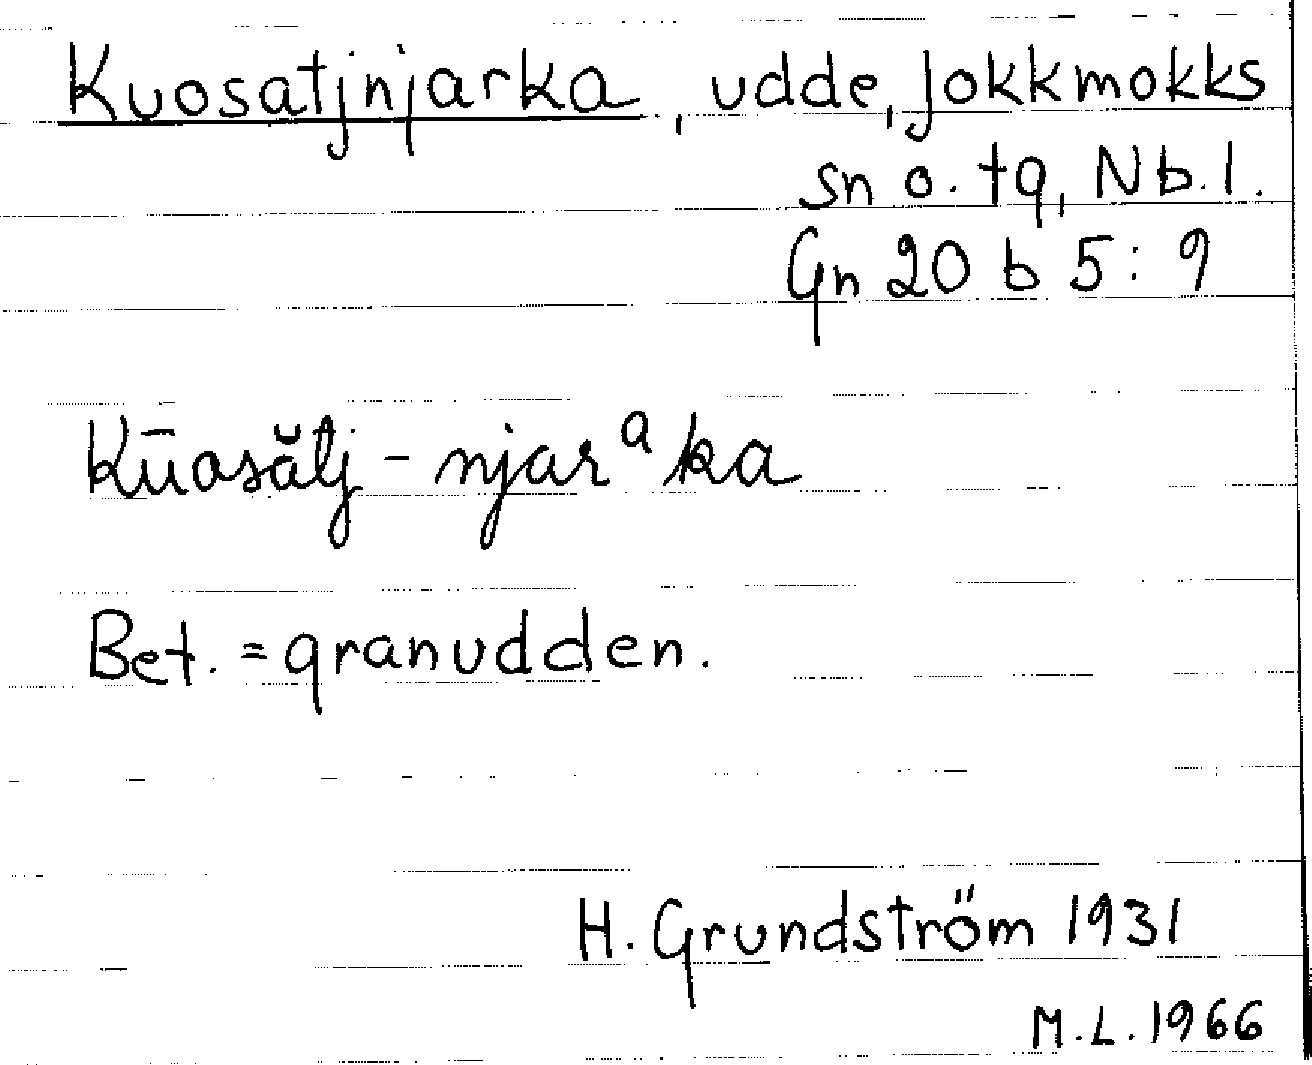 Kuosatjnjarka, udde, Jokkmokks
sn o. tg, Nb. l.
Gn 20 b 5: 9
Kūosătj - njarᵃka
Bet. = granudden.
H. Grundström 1931
M. L. 1966